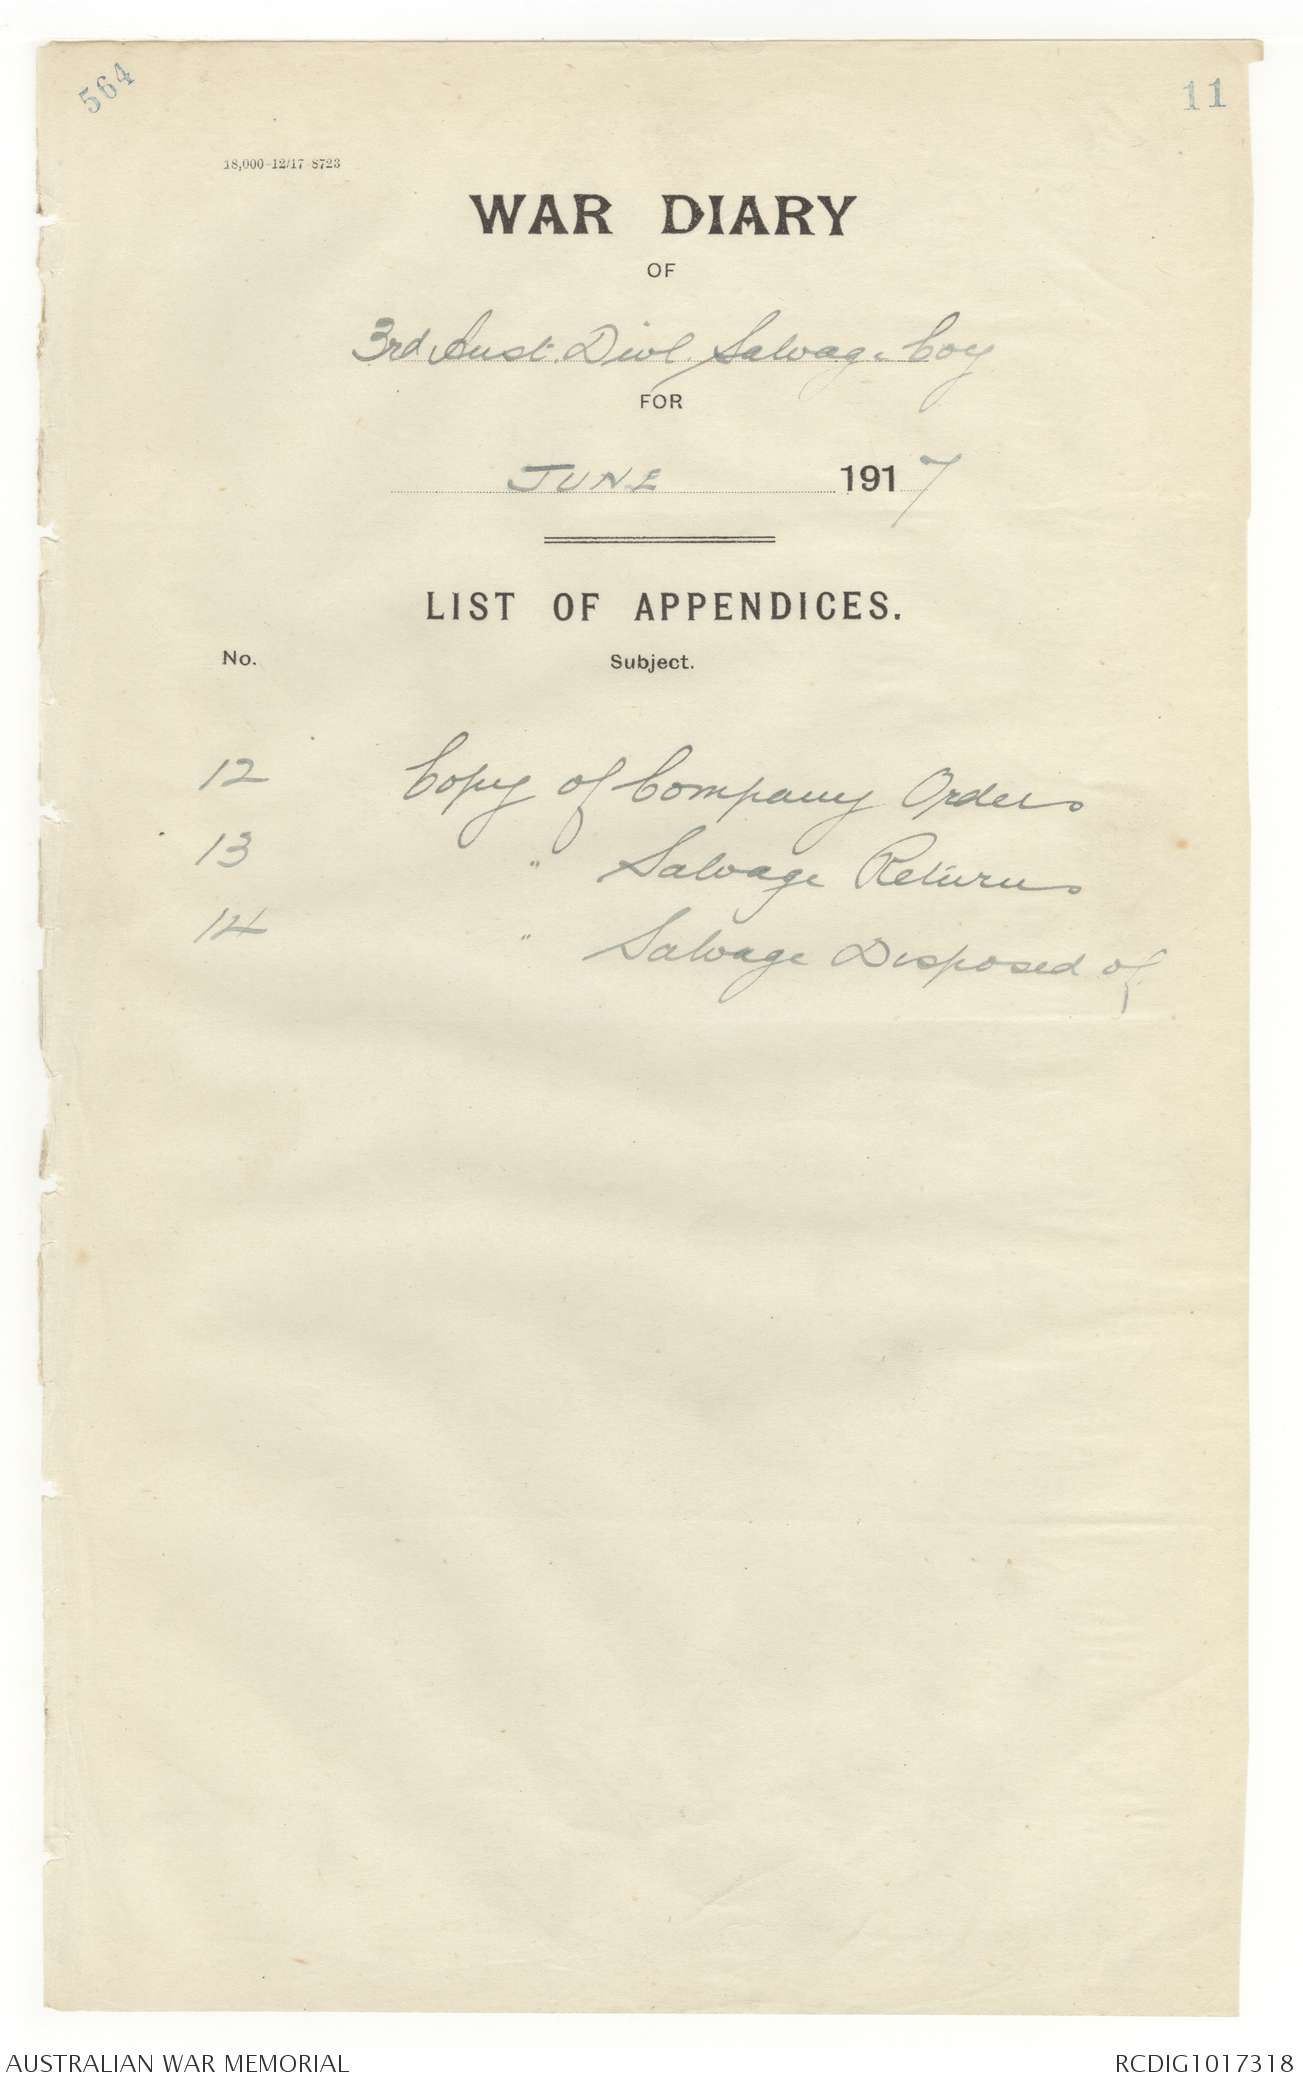 564
11
18,000-12/17-8723
WAR DIARY
OF
3rd Aust. Divl. Salvage Coy
FOR
JUNE 1917
LIST OF APPENDICES.
No. Subject.
12 Copy of Company Orders
13 " Salvage Returns
14 " Salvage Disposed of
AUSTRALIAN WAR MEMORIAL RCDIG1017318